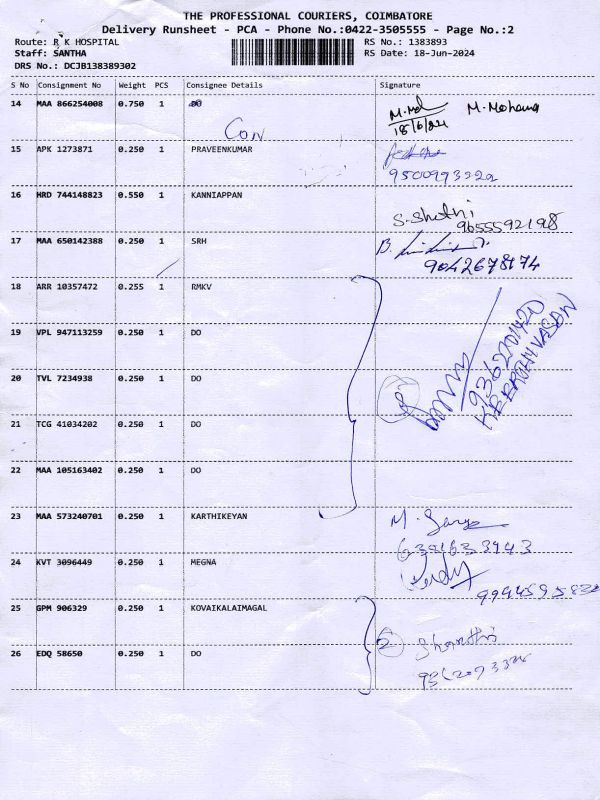 THE PROFESSIONAL COURIERS, COIMBATORE
Delivery Runsheet - PCA - Phone No.:0422-3505555 - Page No.:2
Route: R K HOSPITAL
RS No.: 1383893
Staff: SANTHA
RS Date: 18-Jun-2024
DRS No.: DCJB138389302
S No Consignment No Weight PCS Consignee Details Signature
14 MAA 866254008 0.750 1 DO
M. Mohana
18/6/24
Con
15 APK 1273871 0.250 1 PRAVEENKUMAR
16 HRD 744148823 0.550 1 KANNIAPPAN
S. Shethi
9655592198
17 MAA 650142388 0.250 1 SRH
B.
9042678174
18 ARR 10357472 0.255 1 RMKV
19 VPL 947113259 0.250 1 DO
9362201420
20 TVL 7234938 0.250 1 DO
21 TCG 41034202 0.250 1 DO
22 MAA 105163402 0.250 1 DO
23 MAA 573240701 0.250 1 KARTHIKEYAN
M.
6381633943
24 KVT 3096449 0.250 1 MEGNA
25 GPM 906329 0.250 1 KOVAIKALAIMAGAL
2
26 EDQ 58650 0.250 1 DO